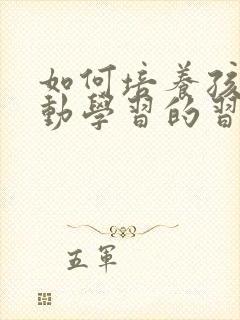 如何培養孩
動學習的習
五軍